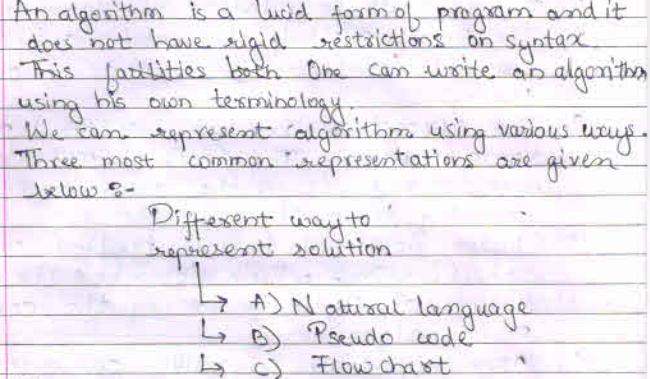 An algorithm is a lucid form of program and it
does not have rigid restrictions on syntax.
This facilities both One can write an algorithm
using his own terminology.
We can represent algorithm using various ways.
Three most common representations are given
below :-
Different way to
represent solution
↳ A) Natural language
↳ B) Pseudo code
↳ C) Flow chart